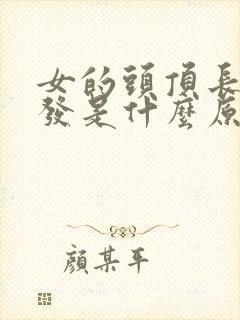 女的頭頂長
發是什麼原
顏某平